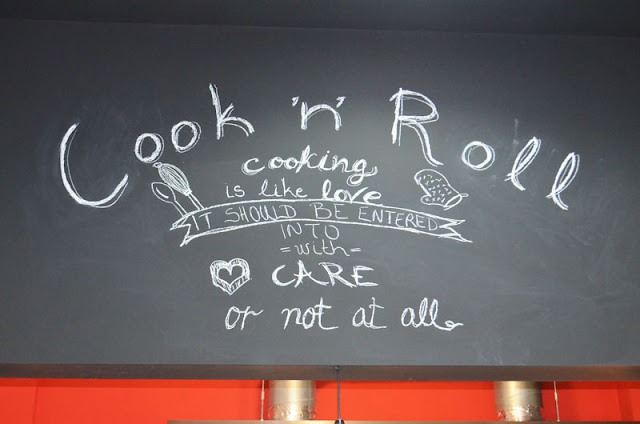 Cook 'n' Roll
cooking
is like love
IT SHOULD BE ENTERED
INTO
=with=
CARE
or not at all